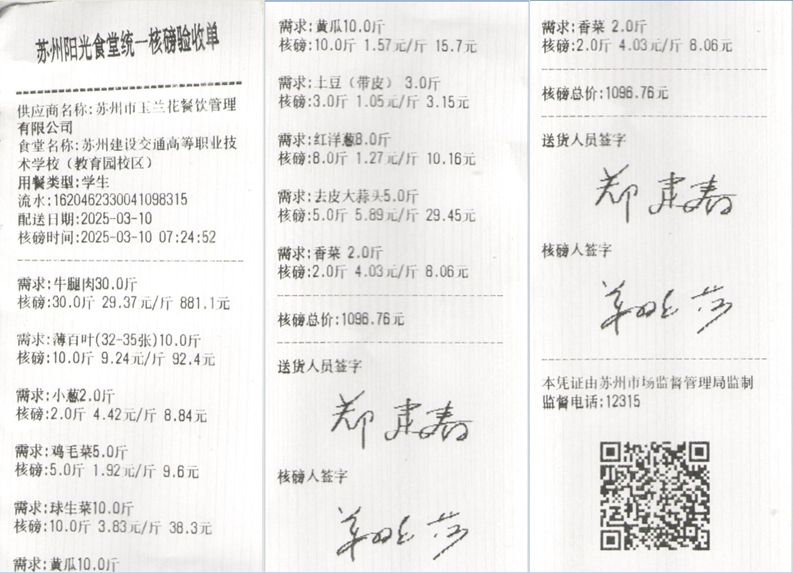 苏州阳光食堂统一核磅验收单
供应商名称:苏州市玉兰花餐饮管理
有限公司
食堂名称:苏州建设交通高等职业技
术学校（教育园校区）
用餐类型:学生
流水:1620462330041098315
配送日期:2025-03-10
核磅时间:2025-03-10 07:24:52
需求:牛腿肉30.0斤
核磅:30.0斤 29.37元/斤 881.1元
需求:薄百叶(32-35张)10.0斤
核磅:10.0斤 9.24元/斤 92.4元
需求:小葱2.0斤
核磅:2.0斤 4.42元/斤 8.84元
需求:鸡毛菜5.0斤
核磅:5.0斤 1.92元/斤 9.6元
需求:球生菜10.0斤
核磅:10.0斤 3.83元/斤 38.3元
需求:黄瓜10.0斤
需求:黄瓜10.0斤
核磅:10.0斤 1.57元/斤 15.7元
需求:土豆（带皮） 3.0斤
核磅:3.0斤 1.05元/斤 3.15元
需求:红洋葱8.0斤
核磅:8.0斤 1.27元/斤 10.16元
需求:去皮大蒜头5.0斤
核磅:5.0斤 5.89元/斤 29.45元
需求:香菜 2.0斤
核磅:2.0斤 4.03元/斤 8.06元
核磅总价:1096.76元
送货人员签字
核磅人签字
需求:香菜 2.0斤
核磅:2.0斤 4.03元/斤 8.06元
核磅总价:1096.76元
送货人员签字
核磅人签字
本凭证由苏州市场监督管理局监制
监督电话:12315